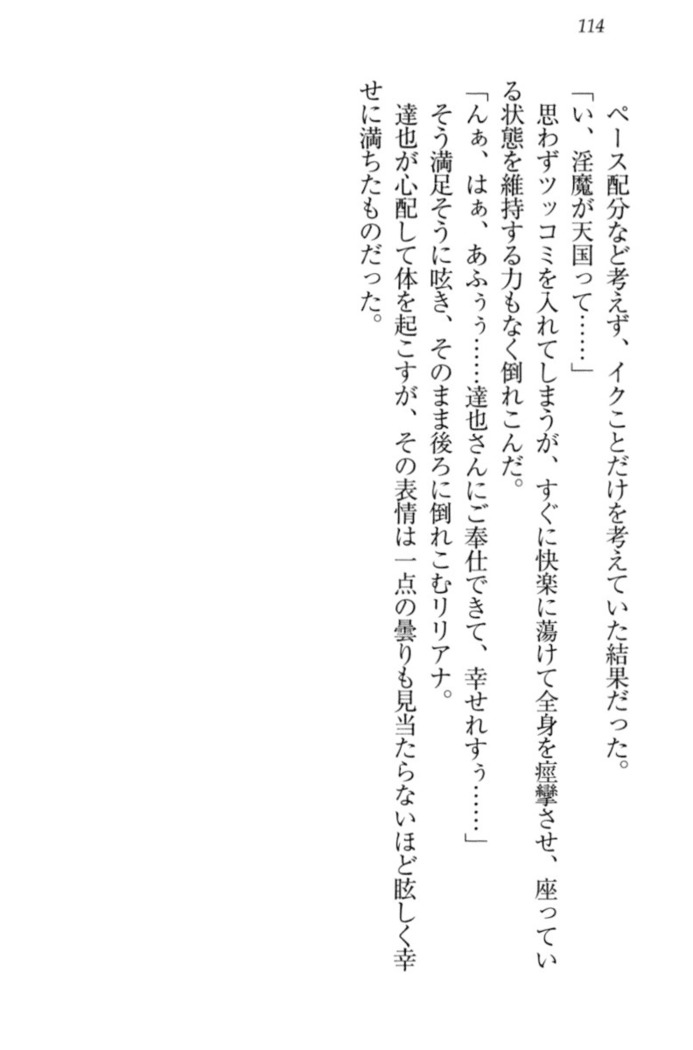 114
ペース配分など考えず、イクことだけを考えていた結果だった。
「い、淫魔が天国って……」
思わずツッコミを入れてしまうが、すぐに快楽に蕩けて全身を痙攣させ、座ってい
る状態を維持する力もなく倒れこんだ。
「んぁ、はぁ、あふぅぅ……達也さんにご奉仕できて、幸せれすぅ……」
そう満足そうに呟き、そのまま後ろに倒れこむリリアナ。
達也が心配して体を起こすが、その表情は一点の曇りも見当たらないほど眩しく幸
せに満ちたものだった。